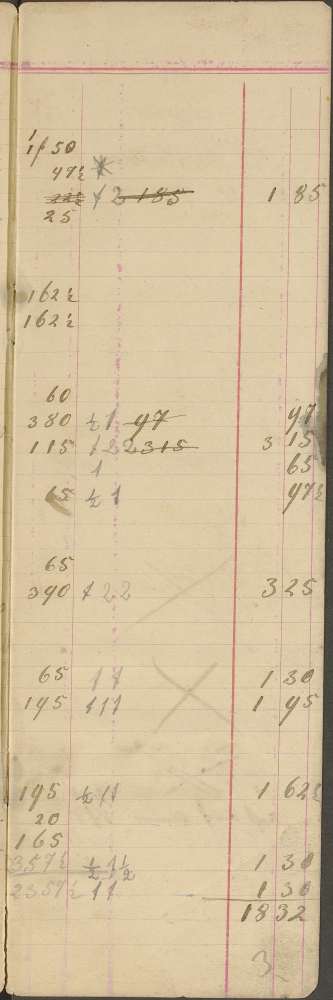 1
1 50
47½
22½ 2 185 1 85
25
162½
162½
60
380 ½ 1 97 97
115 1 2 2 315 3 15
1 65
15 ½ 1 97½
65
390 1 2 2 3 25
65 1 1 1 30
195 1 1 1 1 95
195 ½ 1 1 1 62½
20
165
357½ ½ 1 ½ 1 30
2357½ 1 1 1 30
18 32
3